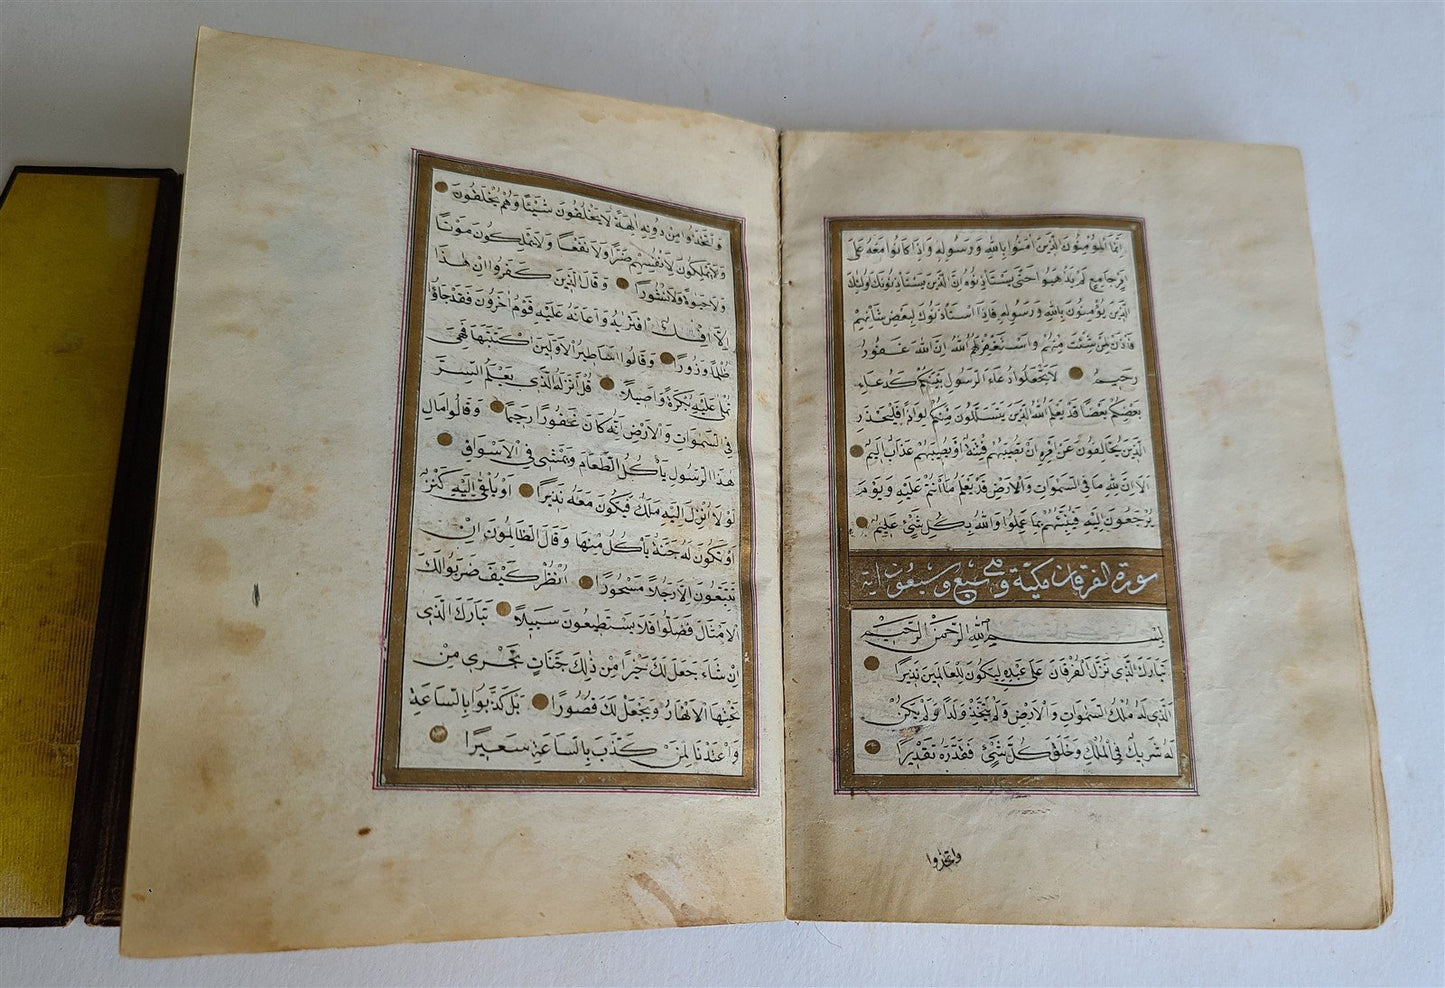 اِنَّمَا الْمُؤْمِنُونَ الَّذِينَ اٰمَنُوا بِاللّٰهِ وَرَسُولِهِ وَاِذَا كَانُوا مَعَهُ عَلٰى
اَمْرٍ جَامِعٍ لَمْ يَذْهَبُوا حَتّٰى يَسْتَاْذِنُوهُ اِنَّ الَّذِينَ يَسْتَاْذِنُونَكَ اُولٰئِكَ
الَّذِينَ يُؤْمِنُونَ بِاللّٰهِ وَرَسُولِهِ فَاِذَا اسْتَاْذَنُوكَ لِبَعْضِ شَاْنِهِمْ
فَاْذَنْ لِمَنْ شِئْتَ مِنْهُمْ وَاسْتَغْفِرْ لَهُمُ اللّٰهَ اِنَّ اللّٰهَ غَفُورٌ
رَحِيمٌ لَا تَجْعَلُوا دُعَاءَ الرَّسُولِ بَيْنَكُمْ كَدُعَاءِ
بَعْضِكُمْ بَعْضًا قَدْ يَعْلَمُ اللّٰهُ الَّذِينَ يَتَسَلَّلُونَ مِنْكُمْ لِوَاذًا فَلْيَحْذَرِ
الَّذِينَ يُخَالِفُونَ عَنْ اَمْرِهِ اَنْ تُصِيبَهُمْ فِتْنَةٌ اَوْ يُصِيبَهُمْ عَذَابٌ اَلِيمٌ
اَلَا اِنَّ لِلّٰهِ مَا فِي السَّمٰوَاتِ وَالْاَرْضِ قَدْ يَعْلَمُ مَا اَنْتُمْ عَلَيْهِ وَيَوْمَ
يُرْجَعُونَ اِلَيْهِ فَيُنَبِّئُهُمْ بِمَا عَمِلُوا وَاللّٰهُ بِكُلِّ شَيْءٍ عَلِيمٌ
سورة الفرقان مكية وهى سبع وسبعون اية
بِسْمِ اللّٰهِ الرَّحْمٰنِ الرَّحِيمِ
تَبَارَكَ الَّذِي نَزَّلَ الْفُرْقَانَ عَلٰى عَبْدِهِ لِيَكُونَ لِلْعَالَمِينَ نَذِيرًا
الَّذِي لَهُ مُلْكُ السَّمٰوَاتِ وَالْاَرْضِ وَلَمْ يَتَّخِذْ وَلَدًا وَلَمْ يَكُنْ
لَهُ شَرِيكٌ فِي الْمُلْكِ وَخَلَقَ كُلَّ شَيْءٍ فَقَدَّرَهُ تَقْدِيرًا
واتخذوا
وَاتَّخَذُوا مِنْ دُونِهِ اٰلِهَةً لَا يَخْلُقُونَ شَيْئًا وَهُمْ يُخْلَقُونَ
وَلَا يَمْلِكُونَ لِاَنْفُسِهِمْ ضَرًّا وَلَا نَفْعًا وَلَا يَمْلِكُونَ مَوْتًا
وَلَا حَيٰوةً وَلَا نُشُورًا وَقَالَ الَّذِينَ كَفَرُوا اِنْ هٰذَا
اِلَّا اِفْكٌ افْتَرٰيهُ وَاَعَانَهُ عَلَيْهِ قَوْمٌ اٰخَرُونَ فَقَدْ جَاؤُ
ظُلْمًا وَزُورًا وَقَالُوا اَسَاطِيرُ الْاَوَّلِينَ اكْتَتَبَهَا فَهِيَ
تُمْلٰى عَلَيْهِ بُكْرَةً وَاَصِيلًا قُلْ اَنْزَلَهُ الَّذِي يَعْلَمُ السِّرَّ
فِي السَّمٰوَاتِ وَالْاَرْضِ اِنَّهُ كَانَ غَفُورًا رَحِيمًا وَقَالُوا مَالِ
هٰذَا الرَّسُولِ يَاْكُلُ الطَّعَامَ وَيَمْشِي فِي الْاَسْوَاقِ
لَوْلَا اُنْزِلَ اِلَيْهِ مَلَكٌ فَيَكُونَ مَعَهُ نَذِيرًا اَوْ يُلْقٰى اِلَيْهِ كَنْزٌ
اَوْ تَكُونُ لَهُ جَنَّةٌ يَاْكُلُ مِنْهَا وَقَالَ الظَّالِمُونَ اِنْ
تَتَّبِعُونَ اِلَّا رَجُلًا مَسْحُورًا اُنْظُرْ كَيْفَ ضَرَبُوا لَكَ
الْاَمْثَالَ فَضَلُّوا فَلَا يَسْتَطِيعُونَ سَبِيلًا تَبَارَكَ الَّذِي
اِنْ شَاءَ جَعَلَ لَكَ خَيْرًا مِنْ ذٰلِكَ جَنَّاتٍ تَجْرِي مِنْ
تَحْتِهَا الْاَنْهَارُ وَيَجْعَلْ لَكَ قُصُورًا بَلْ كَذَّبُوا بِالسَّاعَةِ
وَاَعْتَدْنَا لِمَنْ كَذَّبَ بِالسَّاعَةِ سَعِيرًا